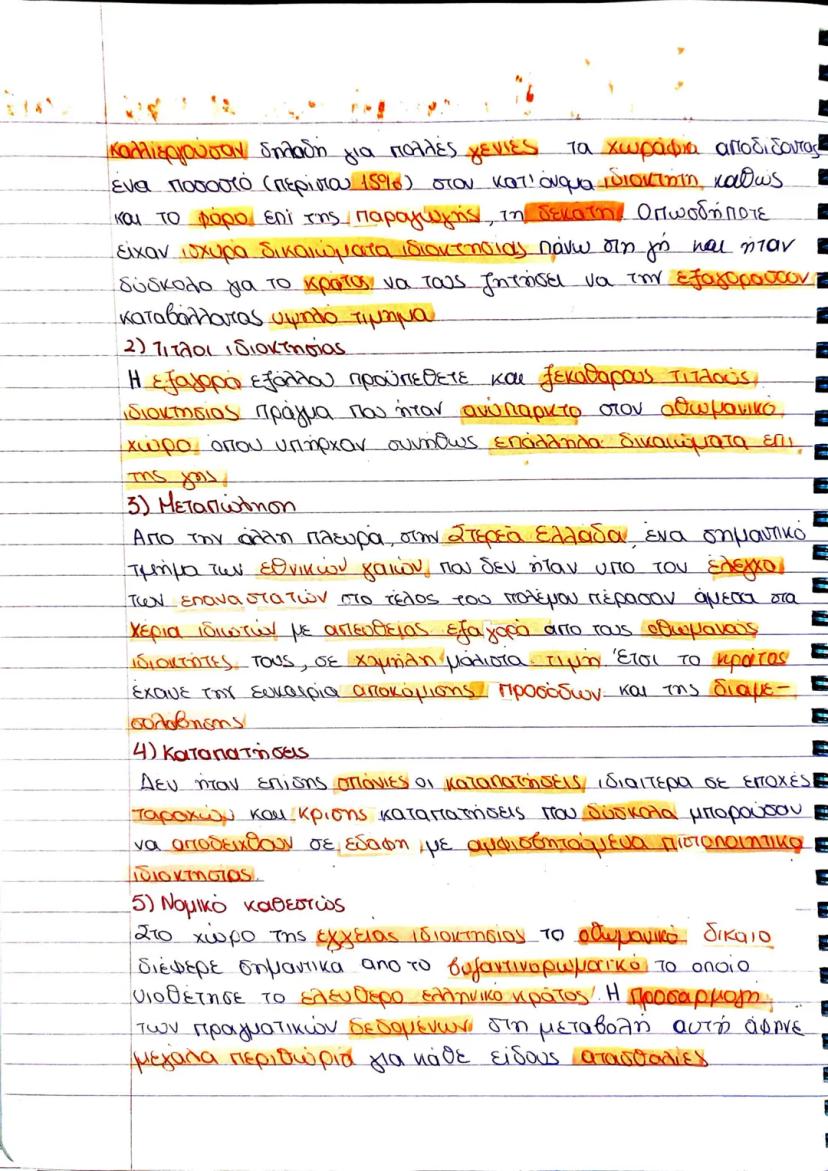 καλλιεργούσαν δηλαδή για πολλές γενιές τα χωράφια αποδίδοντας
ένα ποσοστό (περίπου 15%) στον κατ' όνομα ιδιοκτήτη, καθώς
και το φόρο επί της παραγωγής, τη δεκάτη. Οπωσδήποτε
είχαν ισχυρά δικαιώματα ιδιοκτησίας πάνω στη γή και ήταν
δύσκολο για το κράτος να τους ζητήσει να την εξαγοράσουν
καταβάλλοντας υψηλό τίμημα
2) Τιτλοι ιδιοκτησίας
Η εξαγορά εξάλλου προϋπέθετε και ξεκάθαρους τίτλους
ιδιοκτησίας πράγμα που ήταν ανύπαρκτο στον οθωμανικό
χώρο, όπου υπήρχαν συνήθως επάλληλα δικαιώματα επι
της γης
3) Μεταπώληση
Από την άλλη πλευρά, στην Στερεά Ελλάδα, ένα σημαντικό
τμήμα των εθνικών γαιών, που δεν ήταν υπο τον έλεγχο
των επαναστατών στο τέλος του πολέμου πέρασαν άμεσα στα
χέρια ιδιωτών με απευθείας εξαγορά απο τους οθωμανούς
ιδιοκτήτες τους, σε χαμηλή μάλιστα τιμή. Έτσι το κράτος
έχανε την ευκαιρία αποκόμισης προσόδων και της διαμε-
σολάβησης
4) Καταπατήσεις
Δεν ήταν επίσης σπάνιες οι καταπατήσεις, ιδιαιτερα σε εποχές
ταραχών και κρίσης καταπατήσεις που δύσκολα μπορούσαν
να αποδειχθούν σε εδάφη με αμφισβητούμενα πιστοποιητικά
ιδιοκτησίας.
5) Νομικό καθεστώς
Στο χώρο της εγγειας ιδιοκτησίας το οθωμανικό δίκαιο
διέφερε σημαντικα απο το βυζαντινορωμαικό το οποιο
υιοθέτησε το ελευθερο ελληνικό κράτος. Η προσαρμογή
των πραγματικών δεδομένων στη μεταβολή αυτή άφηνε
μεγάλα περιθώρια για κάθε είδους ατασθαλίες